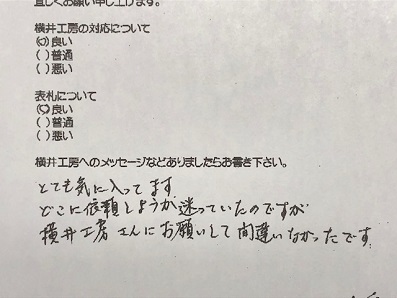 宜しくお願い申し上げます。
横井工房の対応について
(○)良い
( )普通
( )悪い
表札について
(○)良い
( )普通
( )悪い
横井工房へのメッセージなどありましたらお書き下さい。
とても気に入ってます
どこに依頼しようか迷っていたのですが
横井工房さんにお願いして間違いなかったです